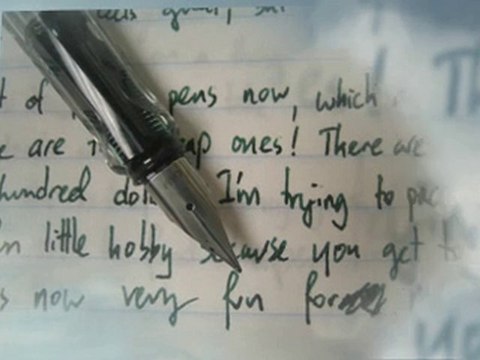 t of pens now, which
e are ap ones! There are
hundred dol I'm trying to
n little hobby because you get
s now very fun for